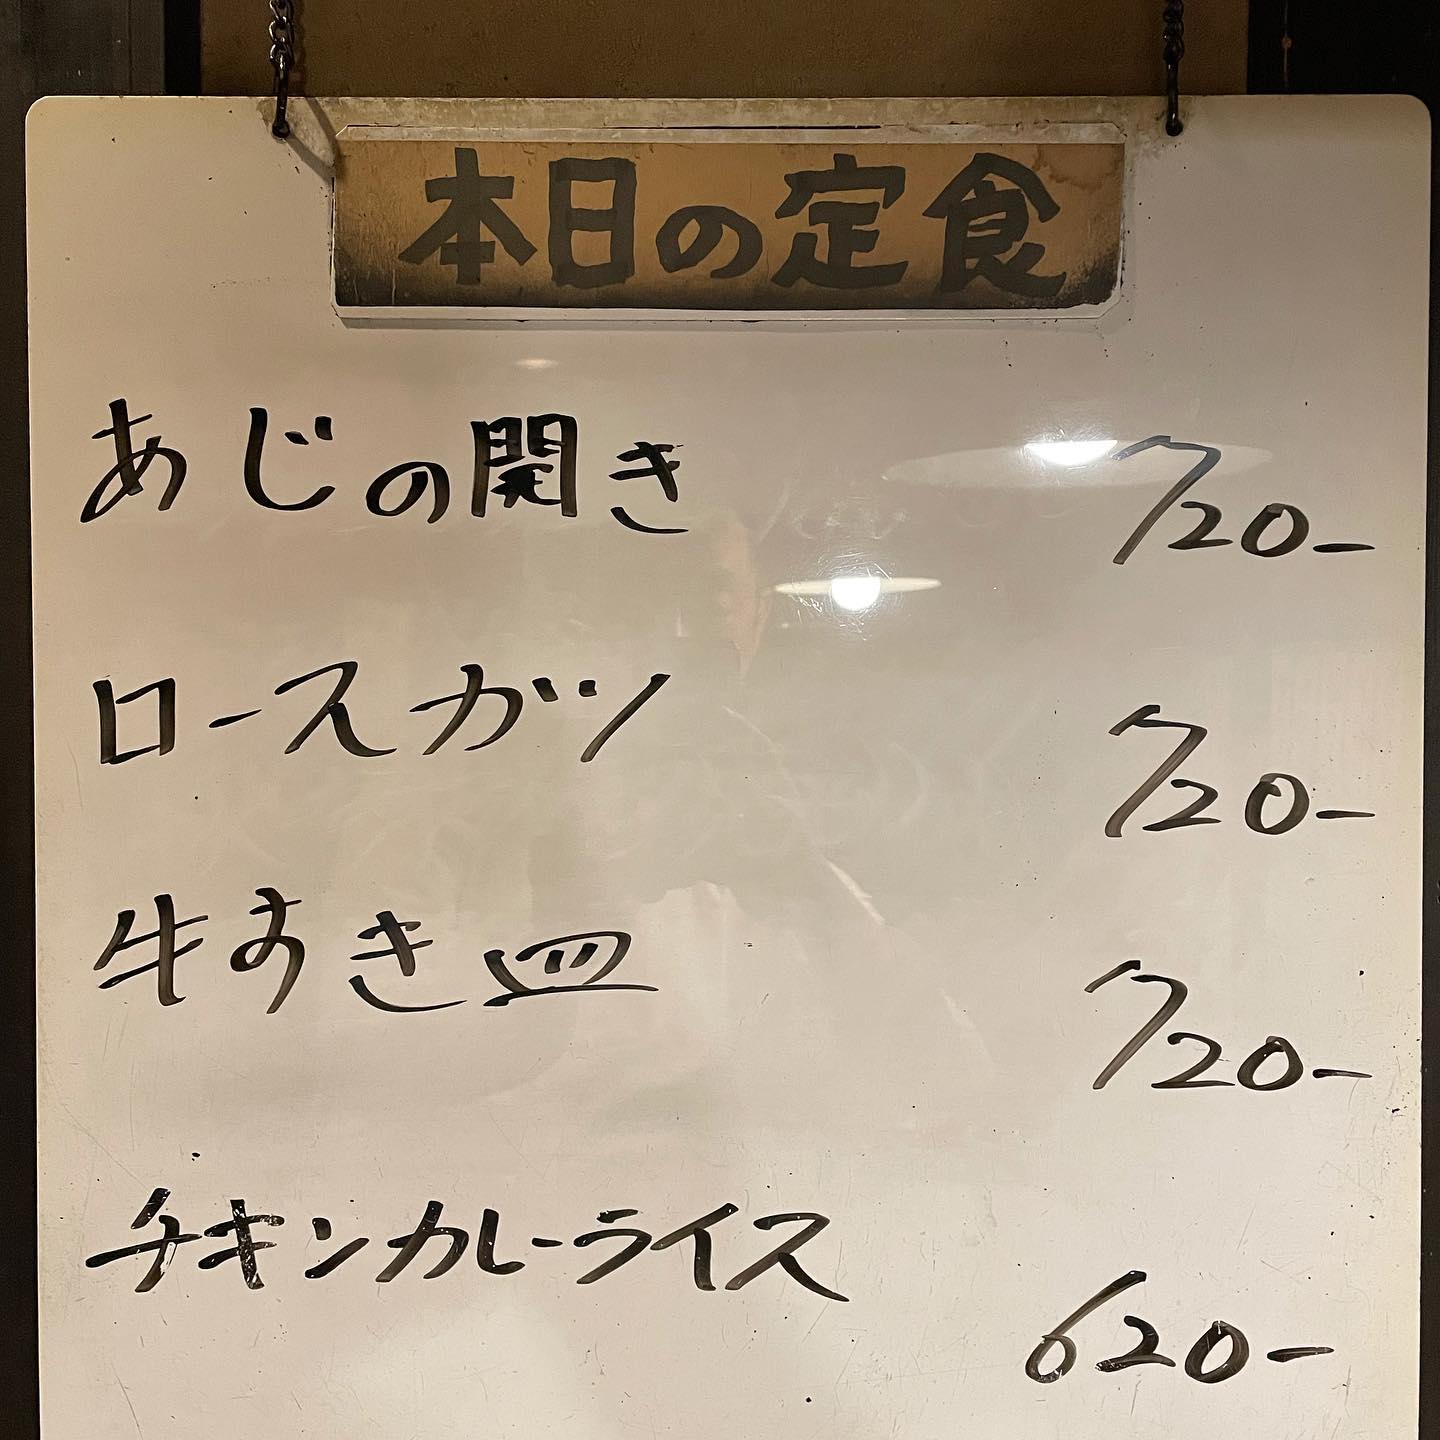 本日の定食
あじの開き 720-
ロースカツ 720-
牛すき皿 720-
チキンカレーライス 620-